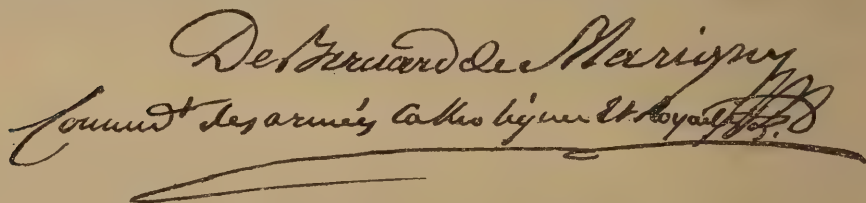 De Bernard de Marigny
Commdt des armées Catholiques Et Royalistes